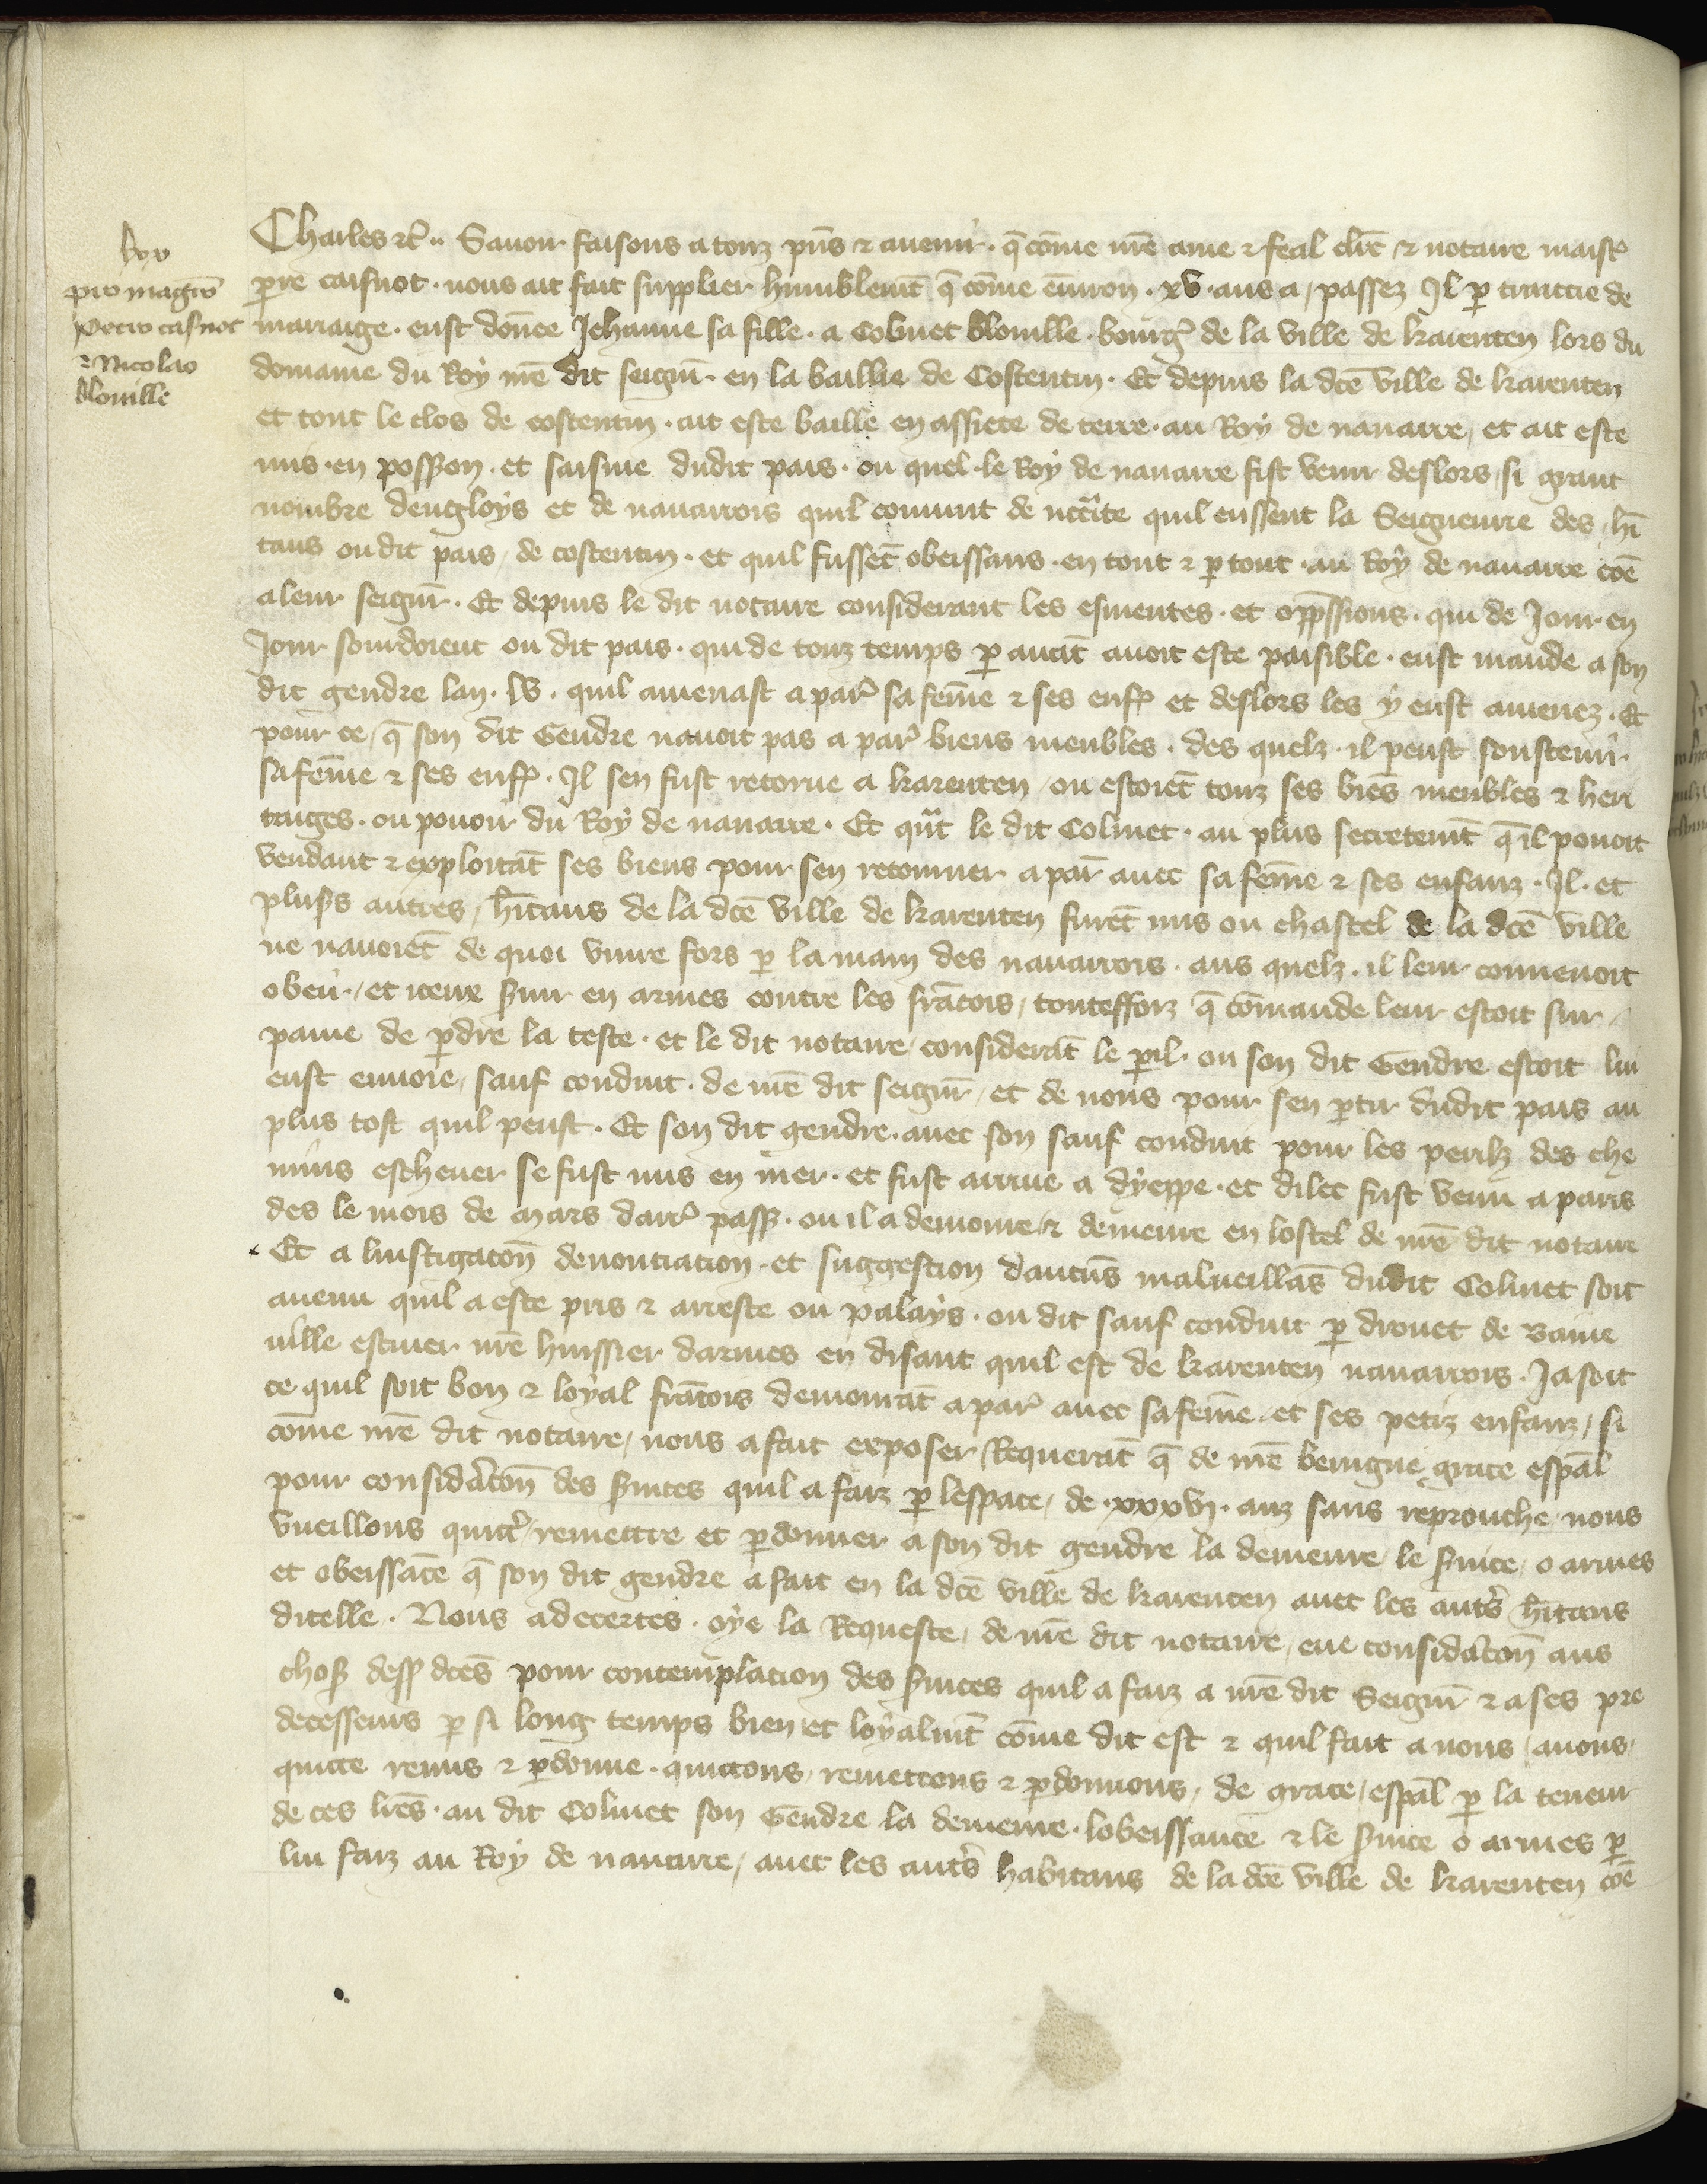 lxv
pro magro
Petro casnot
⁊ Nicolao
blouille
Charles ⁊c̄. Sauoir faisons a touz p̄ns ⁊ auenir . q̄ cōme nr̄e ame ⁊ feal clerc ⁊ notaire maist᷒
p̄rre caisnot . nous ait fait supplier humblem̄t q̄ cōme enuiron . xv . ans a / passez Il p̱ traictie de
mariaige . eust dōnee Jehanne sa fille . a Colinet blouille . bourg᷒ de la ville de karenten lors du
domaine du Roy nr̄e dit seigñ . en la baillie de Costentin . Et depuis la dc̄e ville de karenten
et tout le clos de costentin . ait este baille en assiete de terre . au Roy de nauarre / et ait este
mis . en poss̄on . et saisine dudit pais . ou quel . le Roy de nauarre fist venir deslors / si grant
nombre dengloys et de nauarrois quil conuint de nccīte quil eussent la Seigneurie des / hī
tans oudit pais / de costentin . et quil fussēt obeissans . en tout ⁊ p̱ tout . au Roy de nauarre cōe
a leur seigur̄ . Et depuis le dit notaire considerant les esmeutes . et opp̄ssions . qui de Jour en
Jour sourdoient ou dit pais . qui de touz temps p̱ auāt auoit este paisible . eust mande a son
dit gendre lan . lv . quil amenast a par᷒ sa fem̄e ⁊ ses enf᷒ et deslors les y eust amenez . Et
pour ce / q̄ son dit Gendre nauoit pas a par᷒ biens meubles . des quelz . il peust soustenir
sa fem̄e ⁊ ses enf᷒ . Il sen fust retorne a karenten / ou estoiēt touz ses biēs meubles ⁊ heri
taiges . ou pouoir du Roy de nauarre . Et qu̅t le dit Colinet . au plus secretem̄t q̄ il pouoit
vendant ⁊ exploitāt ses biens pour sen retourner a par̄ auec sa fem̄e ⁊ ses enfanz . Il . et
plus̄s autres / hītans de la dc̄e ville de karenten furēt mis ou chastel de la dc̄e ville
ne nauoiēt de quoi viure fors p̱ la main des nauarrois . aus quelz . il leur conuenoit
obeir . / et iceux s̄uir en armes contre les frācois / toutesfoiz q̄ cōmande leur estoit sur /
paine de p̱dre la teste . et le dit notaire considerāt le p̱il . ou son dit Gendre estoit lui
eust enuoie / sauf conduit . de nr̄e dit seigur̄ / et de nous pour sen p̱tir dudit pais au
plus tost quil peust . Et son dit gendre . auec son sauf conduit pour les perilz des che
mins escheuer se fust mis en mer . et fust arriue a dyeppe . et dilec fust venu a paris
des le mois de mars darr᷒ pass̄ . ou il a demoure / ⁊ demeure en lostel de nr̄e dit notaire
Et a linstigacōn denontiation . et suggestion daucūs malueillās dudit Colinet soit
auenu quil a este pris ⁊ arreste ou palays . ou dit sauf conduit p̱ drouet de baine
uille escuier nr̄e huissier darmes en disant quil est de karenten nauarrois . Ja soit
ce quil soit bon ⁊ loyal frācois demourāt a par᷒ auec sa fem̄e . et ses petiz enfanz / si
cōme nr̄e dit notaire / nous a fait exposer Requerāt q̄ de nr̄e benigne grace esp̄al
pour consid̄acōn des s̄uices quil a faiz p̱ lespace / de . xxxvj . anz sans reprouche / nous
vueillons quict᷒ / remettre et p̱donner a son dit gendre la demeure / le s̄uice / o armes
et obeissāce q̄ son dit gendre a fait en la dc̄e ville de karenten auec les aut᷒s hītans
dicelle . Nous adecertes . oye la Requeste / de nr̄e dit notaire / eue consid̄acōn aus
chos̄ dess᷒ dc̄es pour contemplation des s̄uices quil a faiz a nr̄e dit Seigur̄ ⁊ a ses pre
decesseurs p̱ si long temps bien et loyalmt̄ cōme dit est ⁊ quil fait a nous / auons /
quicte remis ⁊ p̱donne . quictons / remettons ⁊ p̱donnons / de grace / esp̄al p̱ la teneur
de ces lr̄es . au dit Colinet son Gendre la demeure . lobeissance ⁊ le s̄uice o armes p̱
lui faiz au Roy de nauarre / auec les aut᷒s habitans de la dc̄e ville de karenten cōe